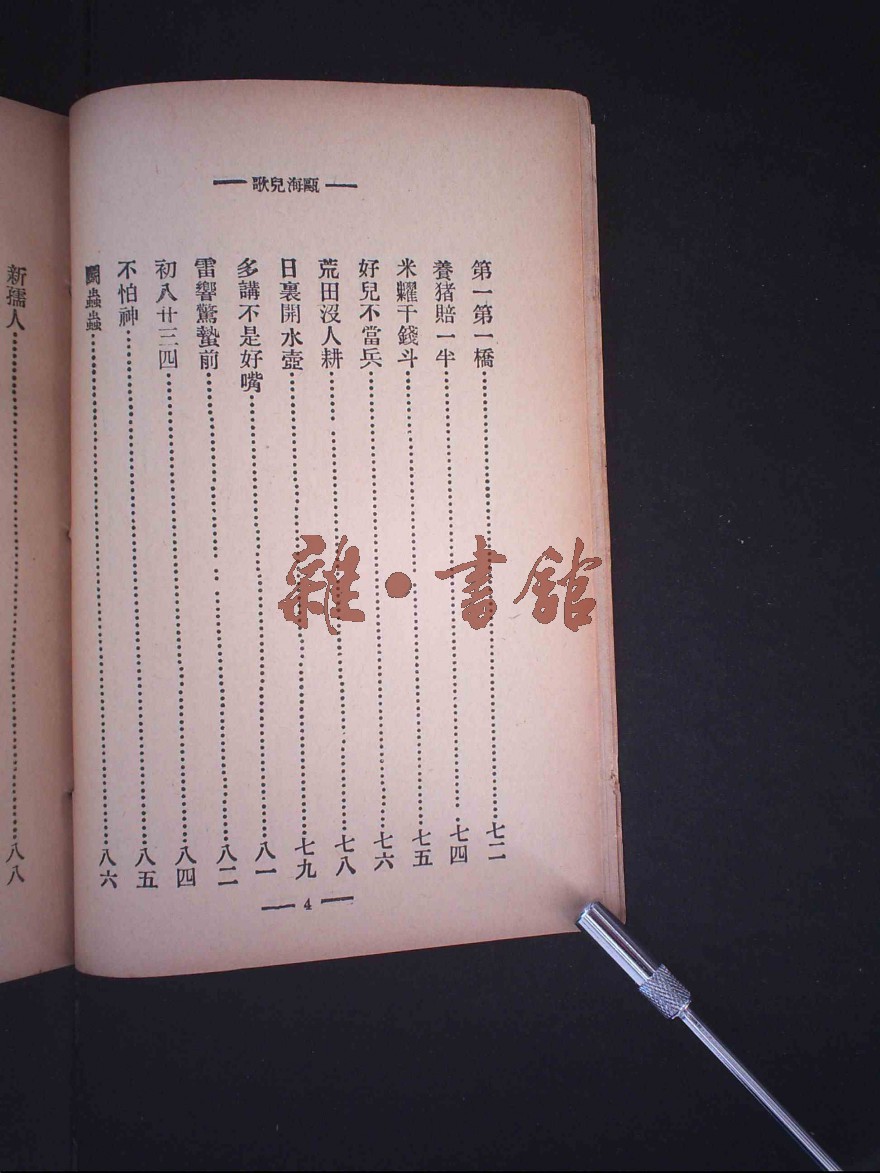 —— 甌海兒歌 ——
第一第一橋……七二
養猪賠一半……七四
米糶千錢斗……七五
好兒不當兵……七六
荒田沒人耕……七八
日裏開水壺……七九
多講不是好嘴……八一
雷響驚蟄前……八二
初八廿三四……八四
不怕神……八五
鬭蟲蟲……八六
—— 4 ——
新孺人……八八
雜·書館